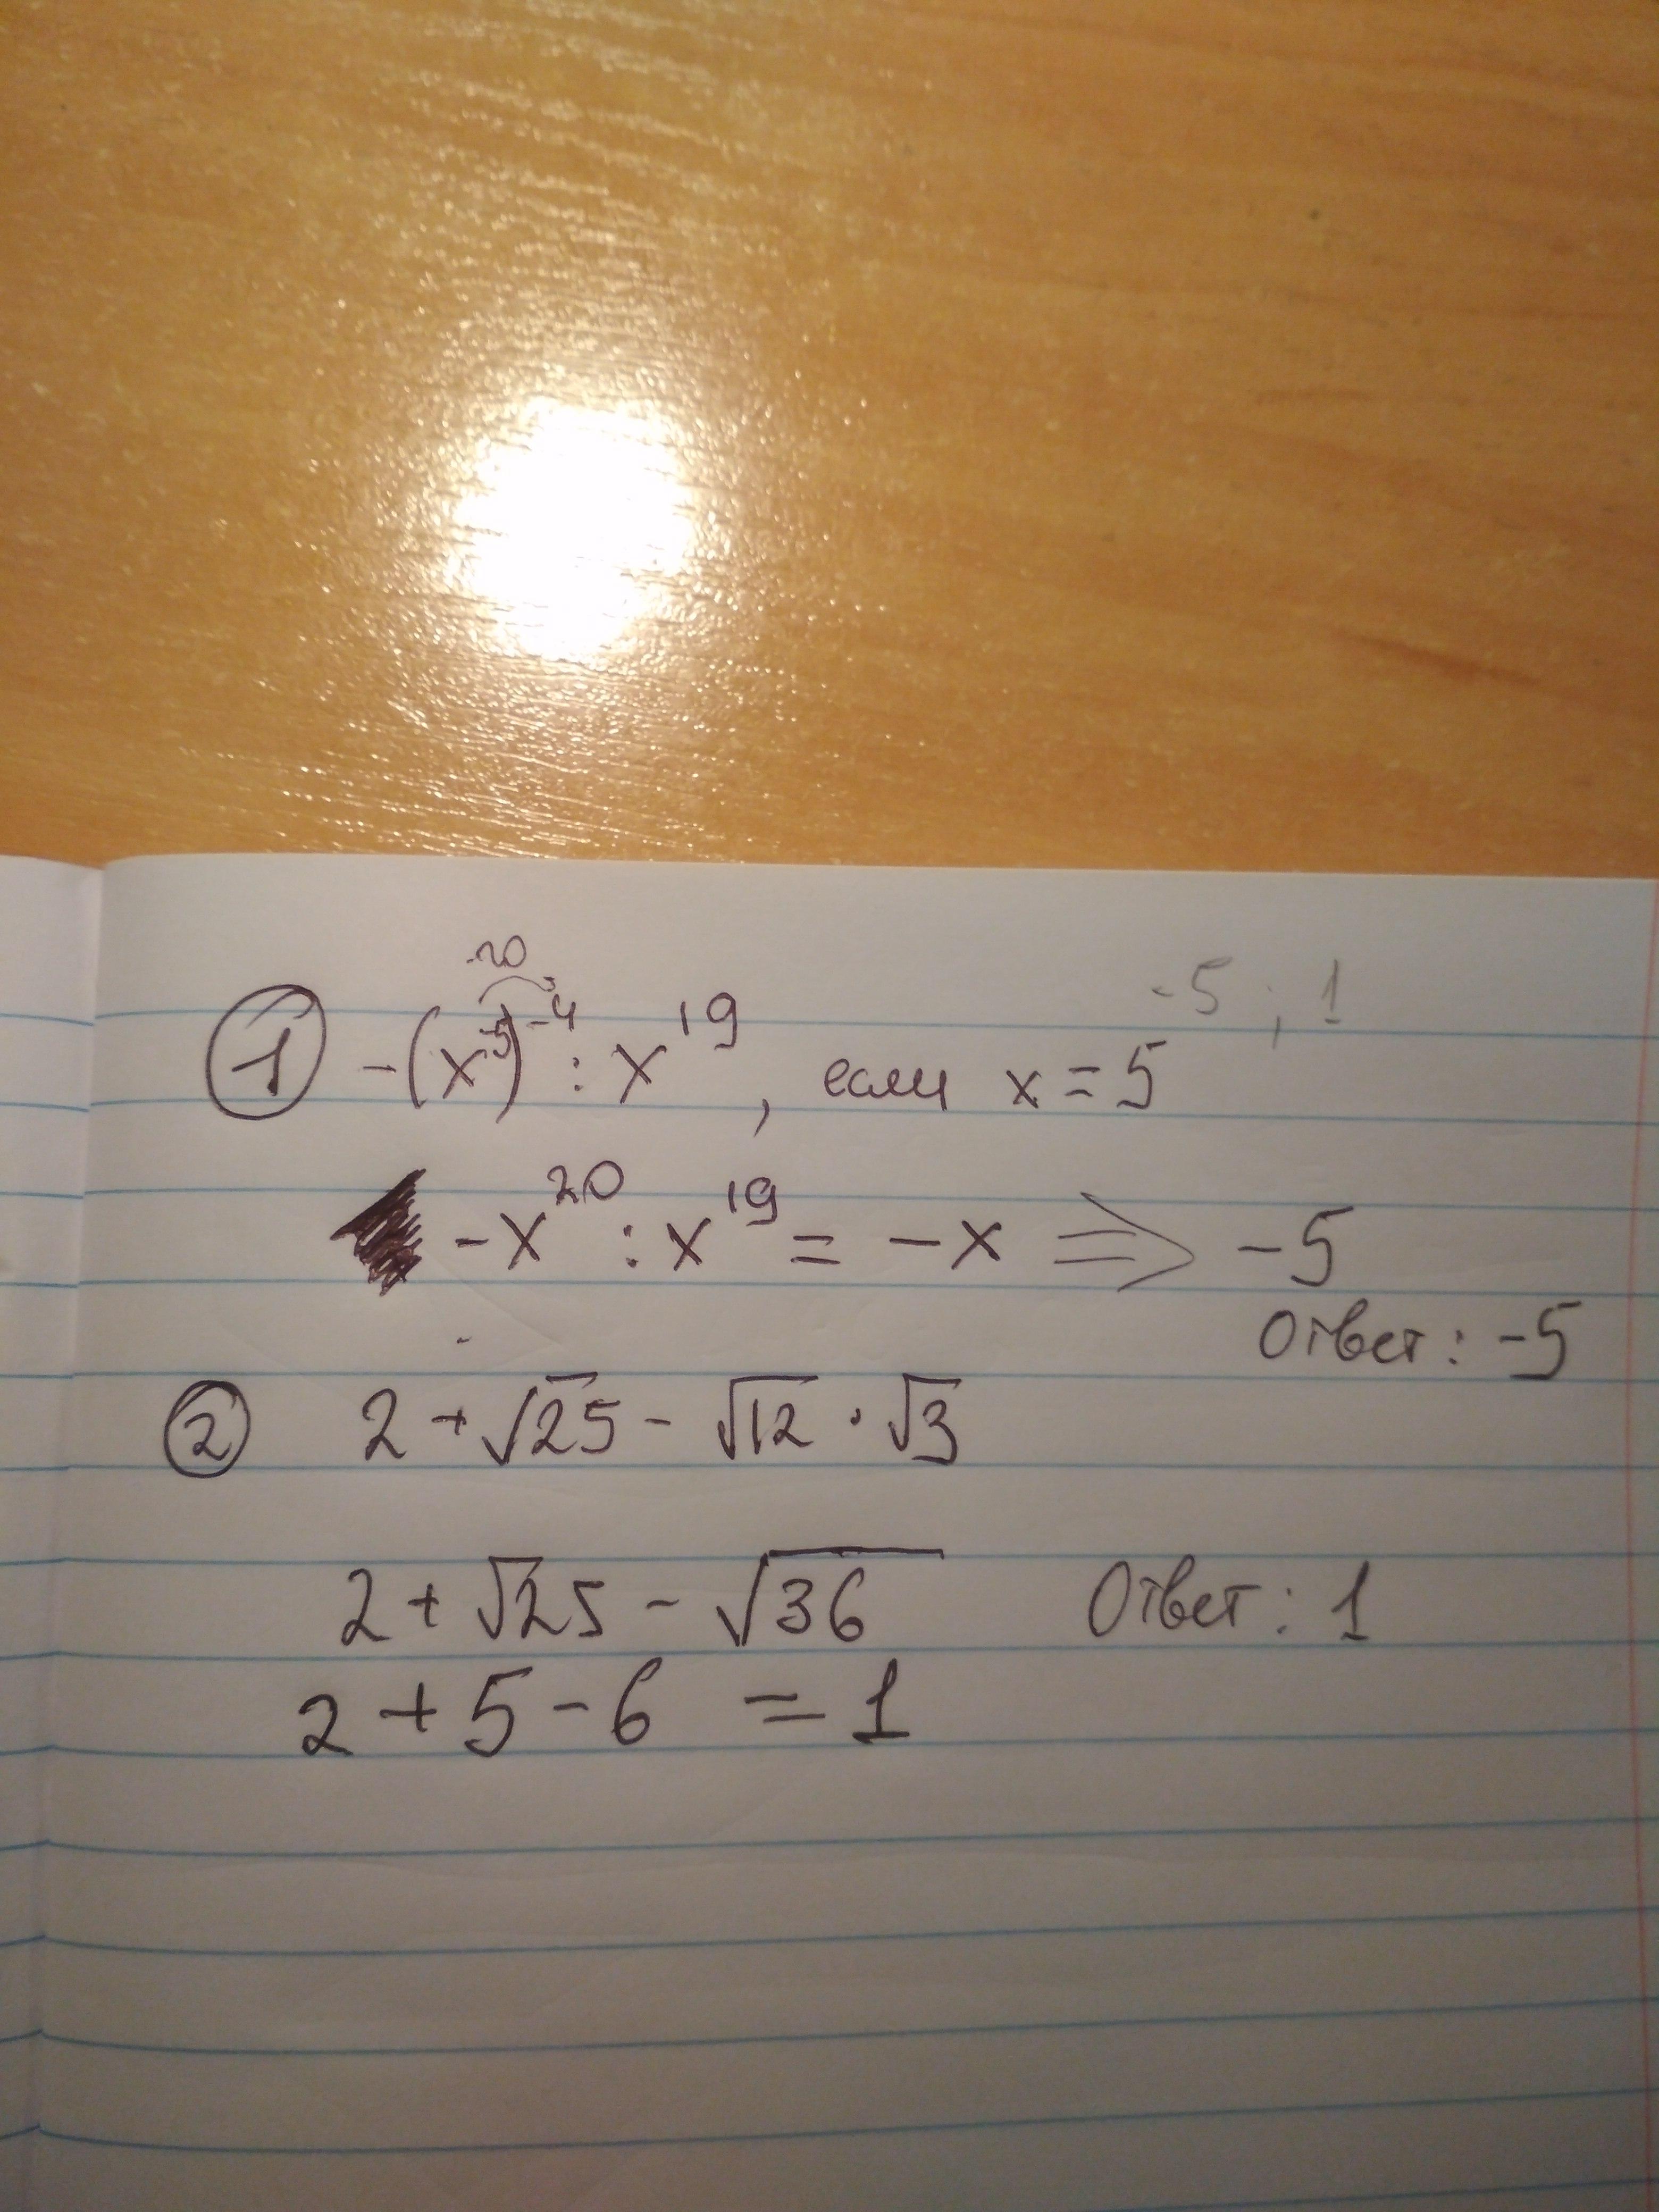 20
-5 ; 1
① -(x⁻⁵)⁻⁴ : x¹⁹, если x = 5
-x²⁰ : x¹⁹ = -x ⇒ -5
Ответ: -5
② 2 + √25 - √12 · √3
2 + √25 - √36 Ответ: 1
2 + 5 - 6 = 1